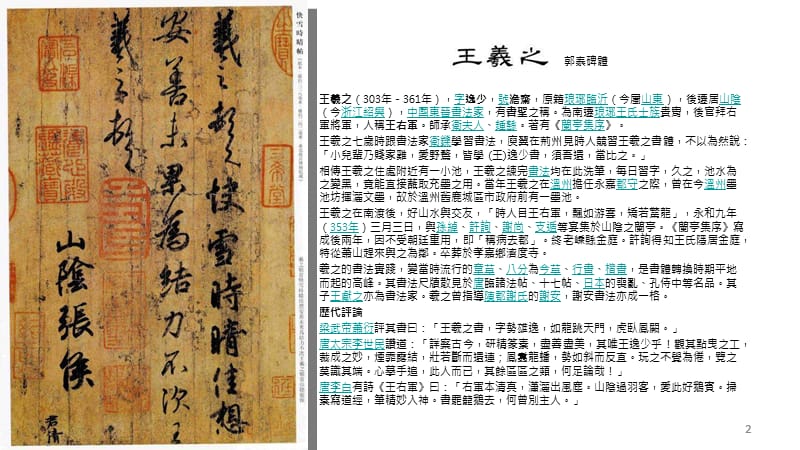 王羲之 郭泰碑體
王羲之（303年－361年），字逸少，號澹齋，原籍琅琊臨沂（今屬山東），後遷居山陰
（今浙江紹興），中國東晉書法家，有書聖之稱。為南遷琅琊王氏士族貴冑，後官拜右
軍將軍，人稱王右軍。師承衛夫人、鍾繇。著有《蘭亭集序》。
王羲之七歲時跟書法家衛鑠學習書法，庾翼在荊州見時人競習王羲之書體，不以為然說：
「小兒輩乃賤家雞，愛野鶩，皆學（王)逸少書，須吾還，當比之。」
相傳王羲之住處附近有一小池，王羲之練完書法均在此洗筆，每日習字，久之，池水為
之變黑，竟能直接蘸取充墨之用。當年王羲之在溫州擔任永嘉郡守之際，曾在今溫州墨
池坊揮灑文墨，故於溫州舊鹿城區市政府前有一墨池。
王羲之在南渡後，好山水與交友，「時人目王右軍，飄如游雲，矯若驚龍」，永和九年
（353年）三月三日，與孫綽、許詢、謝尚、支遁等宴集於山陰之蘭亭。《蘭亭集序》寫
成後兩年，因不受朝廷重用，即「稱病去郡」。終老嵊縣金庭。許詢得知王氏隱居金庭，
特從蕭山趕來與之為鄰。卒葬於孝嘉鄉濟度寺。
羲之的書法實踐，變當時流行的章草、八分為今草、行書、楷書，是書體轉換時期平地
而起的高峰。其書法尺牘散見於唐臨諸法帖、十七帖、日本的喪亂、孔侍中等名品。其
子王獻之亦為書法家。羲之曾指導陳郡謝氏的謝安，謝安書法亦成一格。
歷代評論
梁武帝蕭衍評其書曰：「王羲之書，字勢雄逸，如龍跳天門，虎臥鳳闕。」
唐太宗李世民讚道：「詳察古今，研精篆素，盡善盡美，其唯王逸少乎！觀其點曳之工，
裁成之妙，煙霏露結，狀若斷而還連；鳳翥龍蟠，勢如斜而反直。玩之不覺為倦，覽之
莫識其端。心摹手追，此人而已，其餘區區之類，何足論哉！」
唐李白有詩《王右軍》曰：「右軍本清真，瀟灑出風塵。山陰過羽客，愛此好鵝賓。掃
素寫道經，筆精妙入神。書罷籠鵝去，何曾別主人。」
2
快雪時晴帖
羲之頓首快雪時晴佳想
安善未果為結力不次王
羲之頓首
山陰張侯
君倩